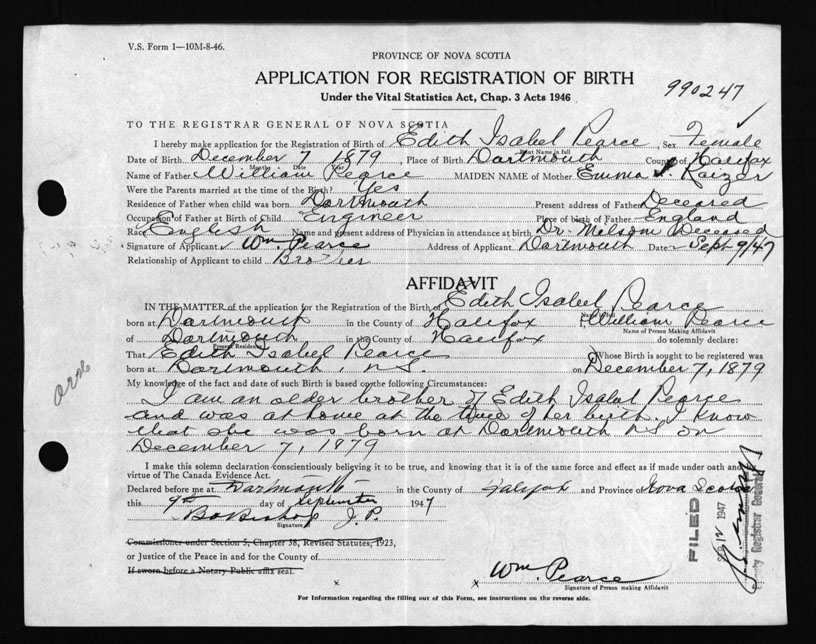 V.S. Form 1—10M-8-46.
PROVINCE OF NOVA SCOTIA
APPLICATION FOR REGISTRATION OF BIRTH
990247
Under the Vital Statistics Act, Chap. 3 Acts 1946
TO THE REGISTRAR GENERAL OF NOVA SCOTIA
I hereby make application for the Registration of Birth of Edith Isabel Pearce, Sex Female
Print Name in full
Date of Birth December 7 1879, Place of Birth Dartmouth County of Halifax
Name of Father William Pearce MAIDEN NAME of Mother Emma J. Kaizer
Were the Parents married at the time of the Birth? Yes
Residence of Father when child was born Dartmouth Present address of Father Deceased
Occupation of Father at Birth of Child Engineer Place of birth of Father England
Race English Name and present address of Physician in attendance at birth Dr. Milsom Deceased
Signature of Applicant Wm. Pearce Address of Applicant Dartmouth Date Sept 9/47
Relationship of Applicant to child Brother
AFFIDAVIT
IN THE MATTER of the application for the Registration of the Birth of Edith Isabel Pearce
born at Dartmouth in the County of Halifax I, William Pearce
Name of Person Making Affidavit
of Dartmouth in the County of Halifax do solemnly declare:
Present Residence
That Edith Isabel Pearce Whose Birth is sought to be registered was
born at Dartmouth, N.S. on December 7, 1879
My knowledge of the fact and date of such Birth is based on the following Circumstances:
I am an older brother of Edith Isabel Pearce
and was at home at the time of her birth. I know
that she was born at Dartmouth N.S. on
December 7, 1879
I make this solemn declaration conscientiously believing it to be true, and knowing that it is of the same force and effect as if made under oath and
virtue of The Canada Evidence Act.
Declared before me at Dartmouth in the County of Halifax and Province of Nova Scotia
this 9th day of September 1947
Bishop J.P.
Signature
Commissioner under Section 5, Chapter 38, Revised Statutes, 1923,
or Justice of the Peace in and for the County of
If sworn before a Notary Public affix seal.
x x Wm. Pearce
Signature of Person making Affidavit
For Information regarding the filling out of this Form, see instructions on the reverse side.
FILED
12 1947
Deputy Registrar General